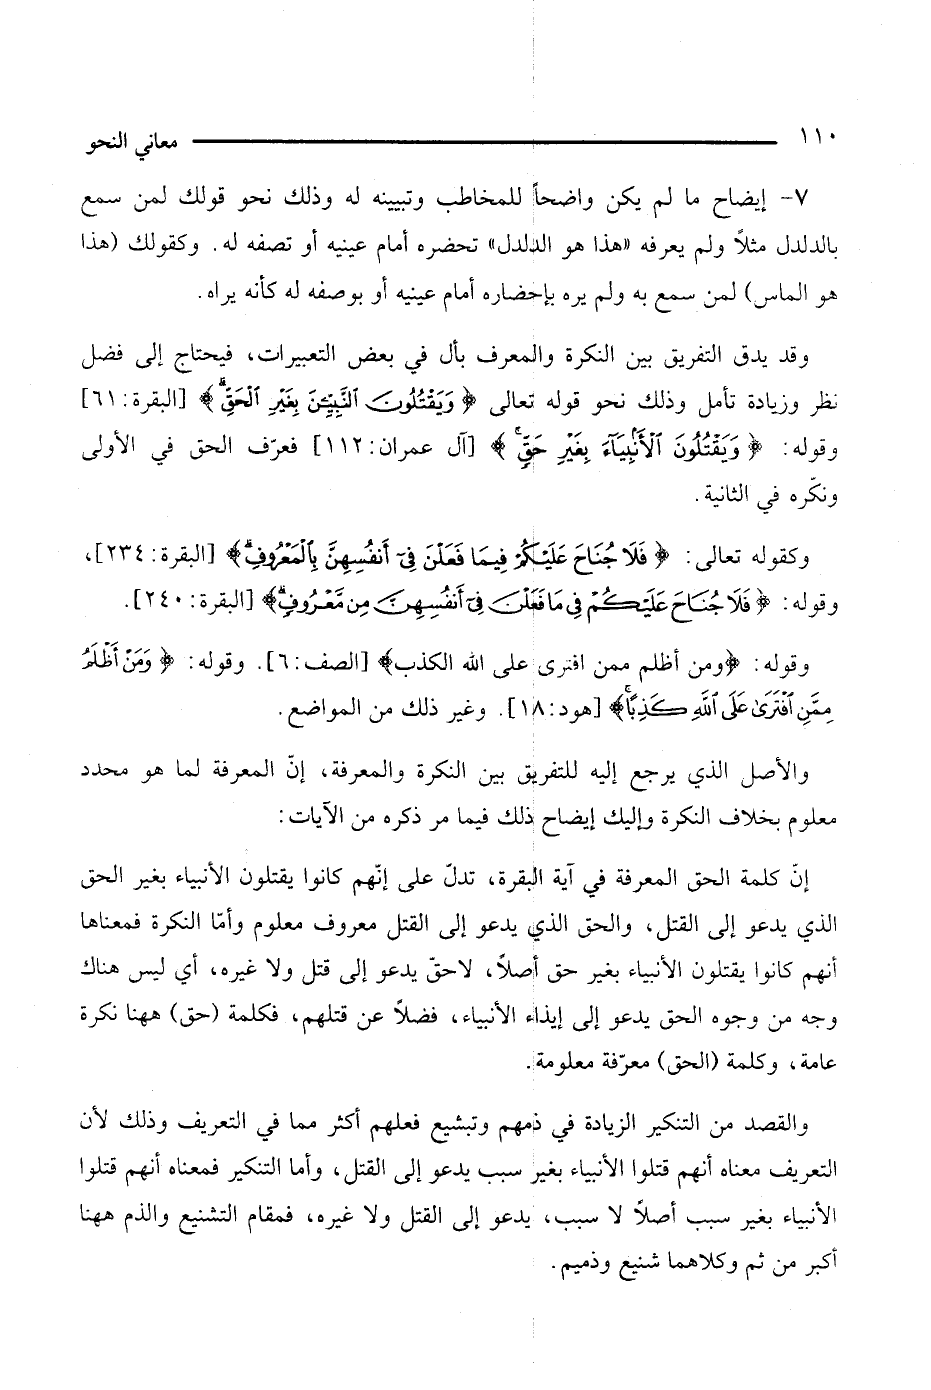 ١١٠ معاني النحو
٧- إيضاح ما لم يكن واضحاً للمخاطب وتبيينه له وذلك نحو قولك لمن سمع
بالدلدل مثلاً ولم يعرفه «هذا هو الدلدل» تحضره أمام عينيه أو تصفه له. وكقولك (هذا
هو الماس) لمن سمع به ولم يره بإحضاره أمام عينيه أو بوصفه له كأنه يراه.
وقد يدق التفريق بين النكرة والمعرف بأل في بعض التعبيرات، فيحتاج إلى فضل
نظر وزيادة تأمل وذلك نحو قوله تعالى ﴿ وَيَقْتُلُونَ ٱلنَّبِيِّـۧنَ بِغَيْرِ ٱلْحَقِّۗ ﴾ [البقرة: ٦١]
وقوله: ﴿ وَيَقْتُلُونَ ٱلْأَنۢبِيَآءَ بِغَيْرِ حَقٍّۚ ﴾ [آل عمران: ١١٢] فعرّف الحق في الأولى
ونكّره في الثانية.
وكقوله تعالى: ﴿ فَلَا جُنَاحَ عَلَيْكُمْ فِيمَا فَعَلْنَ فِىٓ أَنفُسِهِنَّ بِٱلْمَعْرُوفِۗ ﴾ [البقرة: ٢٣٤]،
وقوله: ﴿ فَلَا جُنَاحَ عَلَيْكُمْ فِى مَا فَعَلْنَ فِىٓ أَنفُسِهِنَّ مِن مَّعْرُوفٍۗ ﴾ [البقرة: ٢٤٠].
وقوله: ﴿ومن أظلم ممن افترى على الله الكذب﴾ [الصف: ٦]. وقوله: ﴿ وَمَنْ أَظْلَمُ
مِمَّنِ ٱفْتَرَىٰ عَلَى ٱللَّهِ كَذِبًاۚ ﴾ [هود: ١٨]. وغير ذلك من المواضع.
والأصل الذي يرجع إليه للتفريق بين النكرة والمعرفة، إنّ المعرفة لما هو محدد
معلوم بخلاف النكرة وإليك إيضاح ذلك فيما مر ذكره من الآيات:
إنّ كلمة الحق المعرفة في آية البقرة، تدلّ على إنّهم كانوا يقتلون الأنبياء بغير الحق
الذي يدعو إلى القتل، والحق الذي يدعو إلى القتل معروف معلوم وأمّا النكرة فمعناها
أنهم كانوا يقتلون الأنبياء بغير حق أصلاً، لاحقّ يدعو إلى قتل ولا غيره، أي ليس هناك
وجه من وجوه الحق يدعو إلى إيذاء الأنبياء، فضلاً عن قتلهم، فكلمة (حق) ههنا نكرة
عامة، وكلمة (الحق) معرّفة معلومة.
والقصد من التنكير الزيادة في ذمهم وتبشيع فعلهم أكثر مما في التعريف وذلك لأن
التعريف معناه أنهم قتلوا الأنبياء بغير سبب يدعو إلى القتل، وأما التنكير فمعناه أنهم قتلوا
الأنبياء بغير سبب أصلاً لا سبب، يدعو إلى القتل ولا غيره، فمقام التشنيع والذم ههنا
أكبر من ثم وكلاهما شنيع وذميم.